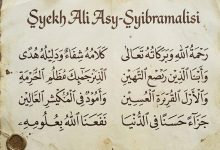 Syekh Ali Asy-Syibramalisi
رَحْمَةُ اللهِ وَبَرَكَاتُهُ تَعَالَى كَلَامُهُ شِفَاءٌ وَدَلِيلُهُ هُدًى
وَأَبْنَا الَّذِينَ رَضَعَ التَّهَمِينَ الَّذِينَ حَبِيبُكَ مَظْلُمِ الْحُرْمَةِ
وَالْأَزَلِ الْقَرِيرَةِ الْعَسِيبِينَ وَأَمُودُ فِي الْمُنْكَسِرِ الْعَالِينَ
جَزَاءً حَسَنًا فِي الدُّنْيَا نَفَعَنَا اللهُ بِعُلُومِهِ